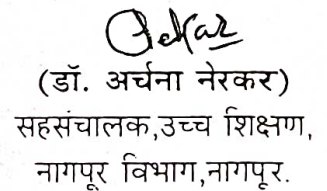 (डॉ. अर्चना नेरकर)
सहसंचालक,उच्च शिक्षण,
नागपूर विभाग,नागपूर.